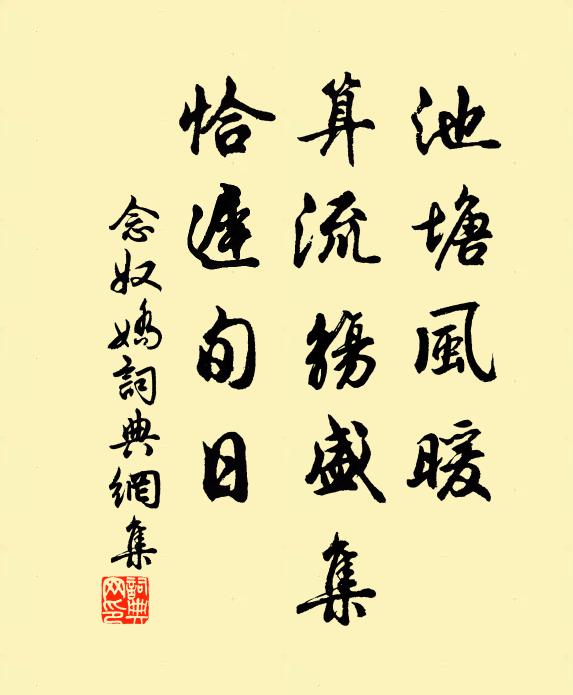 池塘風暖
算流觴盛集
恰遲旬日
念奴嬌詞典網集
詞典網印